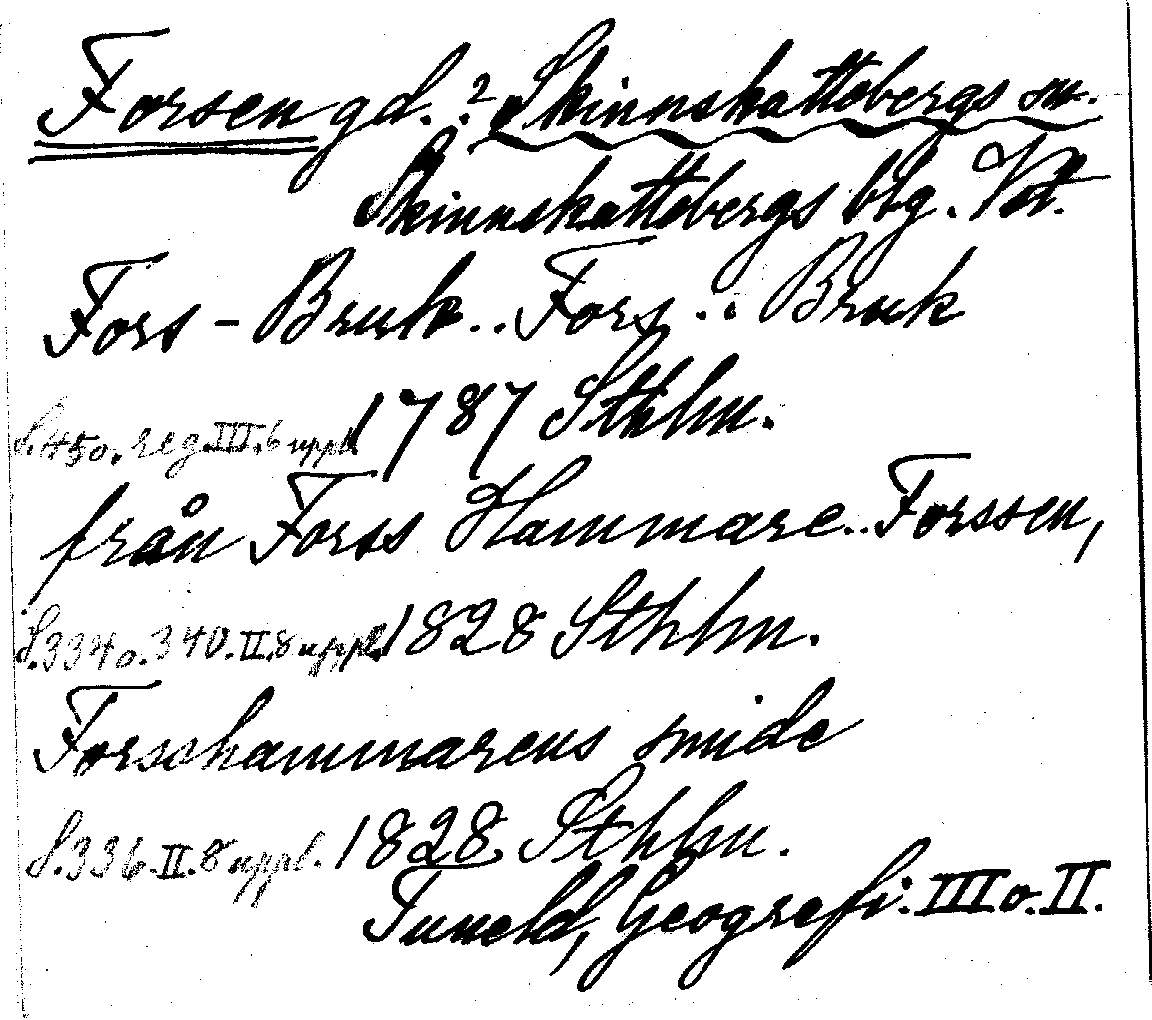 Forsen gd.? Skinnskattebergs sn.
Skinnskattebergs btg. Vstm.
Fors - Bruk.. Fors .. Bruk
S.450. reg.III.6 uppl. 1787 Sthlm.
från Forss Hammare.. Forssen,
S.334 o. 340.II.8 uppl. 1828 Sthlm.
Forsshammarens smide
S.336.II.8 uppl. 1828 Sthlm.
Tuneld, Geografi. III o. II.